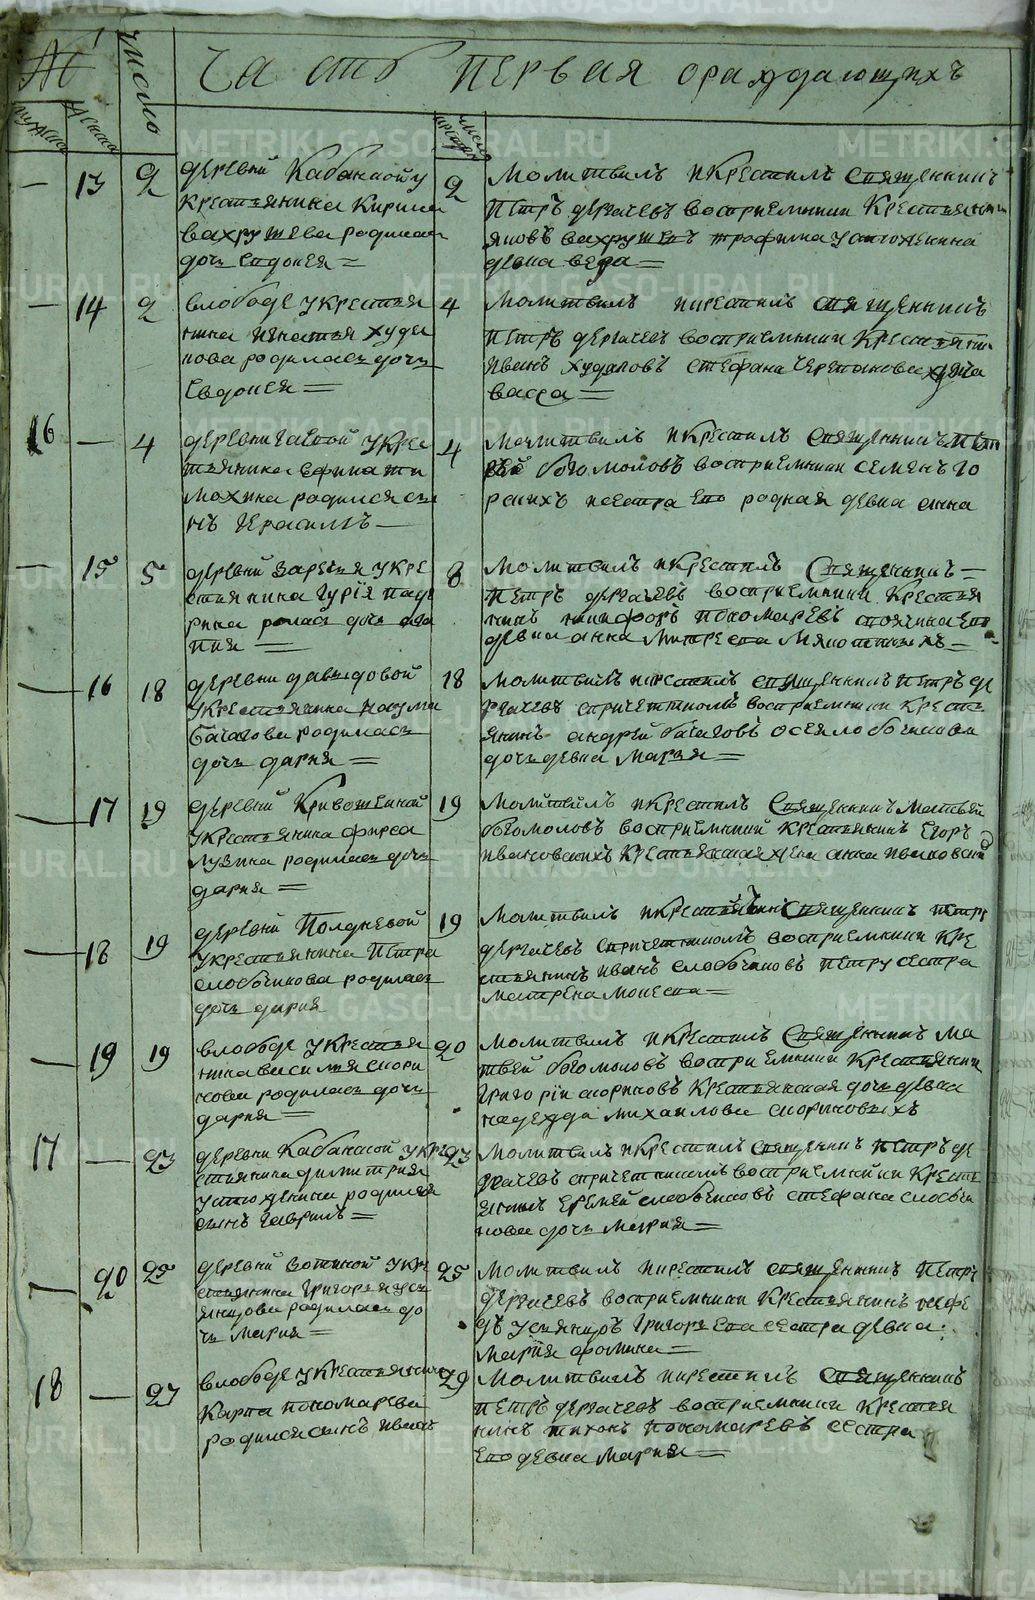 №
число
часть первая ораждающихъ
мужеска
женска
число
13
2
деревни Кабанской у
крестьянина Кирила
вахрушева родилась
дочь Евдокея =
2
Молитвилъ и крестилъ священникъ
Петръ дергачевъ восприемники Крестьянинъ
яковъ вахрушевъ трофима устюженина
девка вера =
14
2
в слободе у крестья
нина игнатья худя
кова родилась дочь
Евдокея =
4
Молитвилъ и крестилъ священникъ
Петръ дергачевъ восприемники Крестьянин
иванъ худяковъ стефана черепанова жена
васса =
16
4
деревни гаевой у крес
тьянина ефима ти
мохина родился сы
нъ Герасимъ
4
Молитвилъ и крестилъ священникъ
богомоловъ восприемники семенъ го
рскихъ и сестра его родная девка анна
15
5
деревни Заречья у кре
стьянина гурія
дочь
8
Молитвилъ и крестилъ Священникъ =
Петръ дергачевъ восприемники крестья
нинъ никифоръ пономаревъ
девка анна
16
18
деревни давыдовой
у крестьянина наума
багачова родилась
дочь дария =
18
Молитвилъ и крестилъ священникъ Петръ де
ргачевъ с причетникомъ восприемники кресть
янинъ андрей
дочь девка Мария =
17
19
деревни Кривошеиной
у крестьянина фирса
лузина родилась дочь
дария =
19
Молитвилъ и крестилъ Священникъ матвей
богомоловъ восприемники крестьянинъ Егоръ
ивановскихъ крестьянская жена анна ивановских
18
19
деревни Полдневой
у крестьянина Петра
слобчикова родилась
дочь дария
19
Молитвилъ и крестилъ Священникъ петръ
дергачевъ с причетникомъ восприемники кре
стьянинъ иванъ слобчиковъ петру сестра
матрена
19
19
в слободе у крестья
нина василья скоры
нова родилась дочь
дария =
20
Молитвилъ и крестилъ Священникъ ма
твей богомоловъ восприемники крестьянинъ
григорій скорыновъ крестьянская дочь девка
надежда михаилова скорыновыхъ
17
23
деревни Кабанской у кре
стьянина димитрия
устюженина родился
сынъ гаврилъ =
23
Молитвилъ и крестилъ священникъ петръ де
ргачевъ с причетникомъ восприемники кресть
янинъ еремей слобчиковъ стефана слобчи
кова дочь мария =
20
25
деревни Зотиной у кре
стьянина григорья уз
янцова родилась до
чь мария =
25
Молитвилъ и крестилъ священникъ Петръ
дергачевъ восприемники крестьянинъ нефе
дъ узянцовъ григорья сестра девка
Мария фомина =
18
27
в слободе у крестьянина
Карпа пономарева
родился сынъ иванъ
29
Молитвилъ и крестилъ священникъ
Петръ дергачевъ восприемники крестья
нинъ тихонъ пономаревъ сестра
его девка Мария =
METRIKI.GASO-URAL.RU